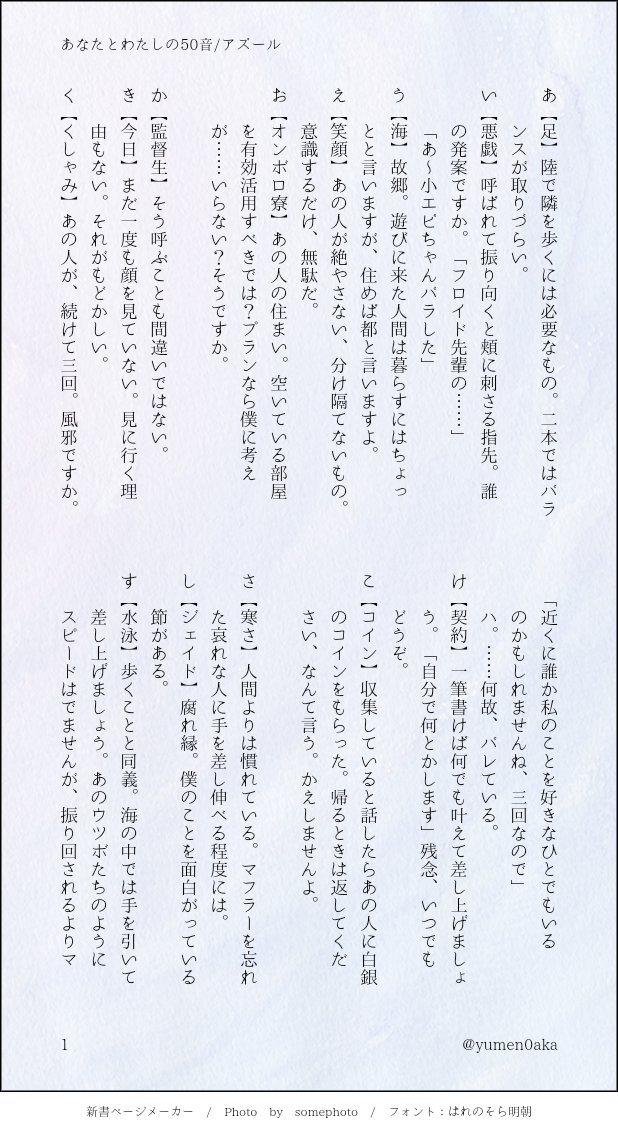 あなたとわたしの50音/アズール
あ【足】陸で隣を歩くには必要なもの。二本ではバラ
ンスが取りづらい。
い【悪戯】呼ばれて振り向くと頬に刺さる指先。誰
の発案ですか。「フロイド先輩の……」
「あ〜小エビちゃんバラした」
う【海】故郷。遊びに来た人間は暮らすにはちょっ
とと言いますが、住めば都と言いますよ。
え【笑顔】あの人が絶やさない、分け隔てないもの。
意識するだけ、無駄だ。
お【オンボロ寮】あの人の住まい。空いている部屋
を有効活用すべきでは？プランなら僕に考え
が……いらない？そうですか。
か【監督生】そう呼ぶことも間違いではない。
き【今日】まだ一度も顔を見ていない。見に行く理
由もない。それがもどかしい。
く【くしゃみ】あの人が、続けて三回。風邪ですか。
「近くに誰か私のことを好きなひとでもいる
のかもしれませんね、三回なので」
ハ。……何故、バレている。
け【契約】一筆書けば何でも叶えて差し上げましょ
う。「自分で何とかします」残念、いつでも
どうぞ。
こ【コイン】収集していると話したらあの人に白銀
のコインをもらった。帰るときは返してくだ
さい、なんて言う。かえしませんよ。
さ【寒さ】人間よりは慣れている。マフラーを忘れ
た哀れな人に手を差し伸べる程度には。
し【ジェイド】腐れ縁。僕のことを面白がっている
節がある。
す【水泳】歩くことと同義。海の中では手を引いて
差し上げましょう。あのウツボたちのように
スピードはでませんが、振り回されるよりマ
1
@yumen0aka
新書ページメーカー / Photo by somephoto / フォント：はれのそら明朝